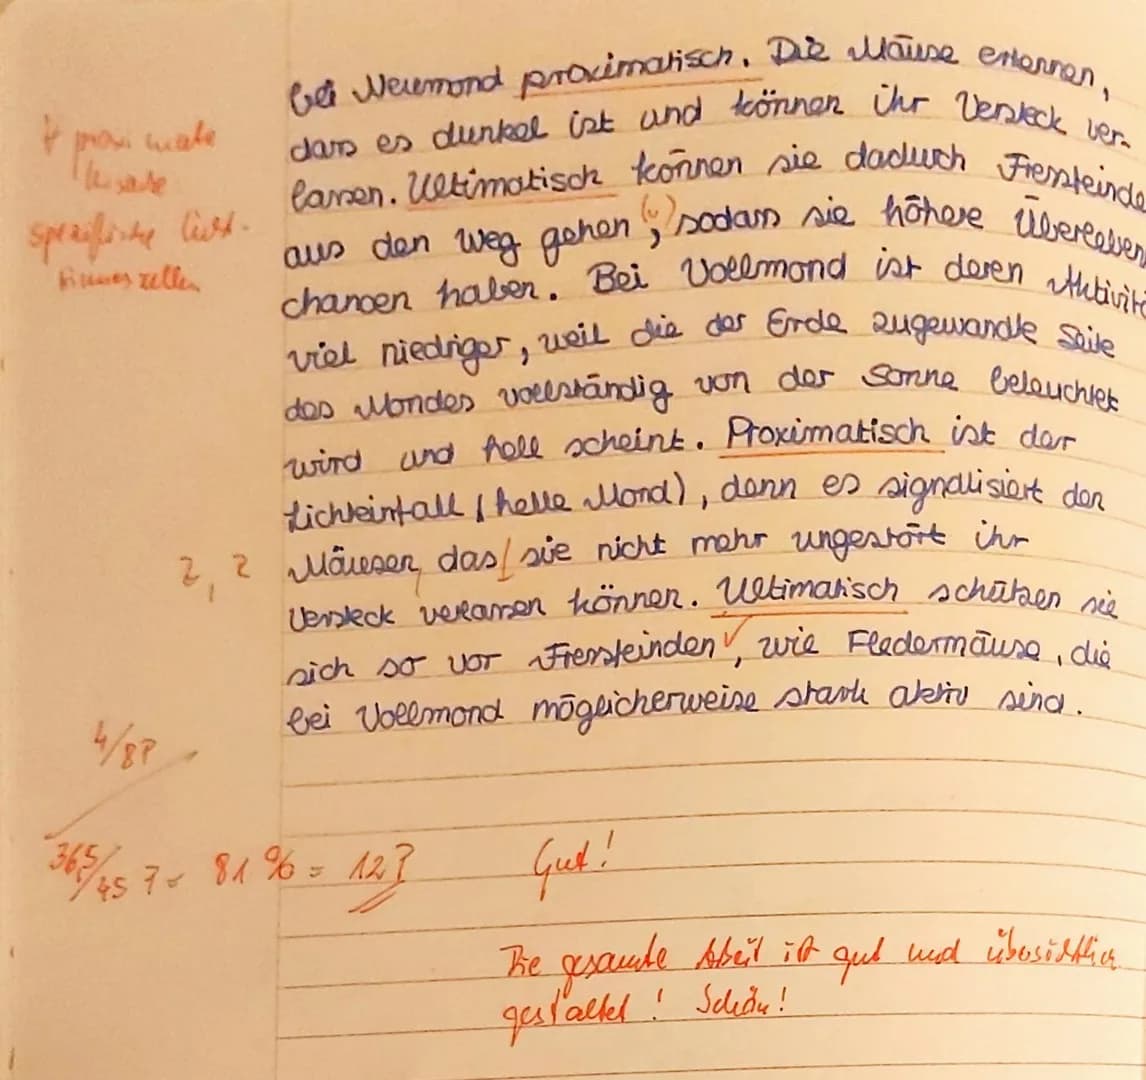 bei Neumond proximatisch. Die Mäuse erkennen,
dass es dunkel ist und können ihr Versteck ver-
lassen. Ultimatisch können sie dadurch Fressfeinde
aus den Weg gehen, sodass sie höhere Überleben
chancen haben. Bei Vollmond ist deren Aktivitä
viel niedriger, weil die der Erde zugewandte Seite
des Mondes vollständig von der Sonne beleuchtet
wird und hell scheint. Proximatisch ist der
Lichteinfall (helle Mond), denn es signalisiert den
Mäusen, das sie nicht mehr ungestört ihr
Versteck verlassen können. Ultimatisch schützen sie
sich so vor Fressfeinden, wie Fledermäuse, die
bei Vollmond möglicherweise stark aktiv sind.
proximate
Ursache
spezifische Licht-
sinneszellen
2, 2
4/8P
36,5/45 P = 81 % = 12P
Gut!
Die gesamte Arbeit ist gut und übersichtlich
gestaltet! Schön!